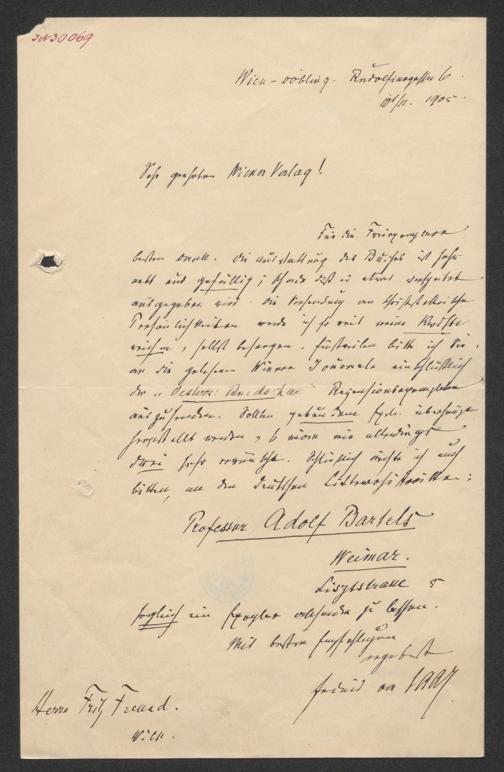 JN 30069
Wien-Döbling. Rudolfinergasse 6.
1905.
Sehr geehrter Wiener Verlag!
Für die Freiexemplare
besten Dank. Die Ausstattung des Buches ist sehr
nett und gefällig; schade daß es etwas verspätet
ausgegeben wird. Die Versendung an schriftstellerische
Persönlichkeiten werde ich so weit meine Kräfte
reichen, selbst besorgen. Einstweilen bitte ich Sie,
an die gelesenen Wiener Journale einschließlich
der „Oesterr. Rundschau“ Rezensionsexemplare
auszusenden. Sollten gebundene Expl. überhaupt
hergestellt werden, so wären mir allerdings
drei sehr erwünscht. Schließlich möchte ich noch
bitten, an den deutschen Litterarhistoriker:
Professor Adolf Bartels
Weimar.
Lisztstrasse 5
sogleich ein Exemplar absenden zu lassen.
Mit besten Empfehlungen
ergebenst
Ferdinand von Saar
Herrn Fritz Freund.
Wien.